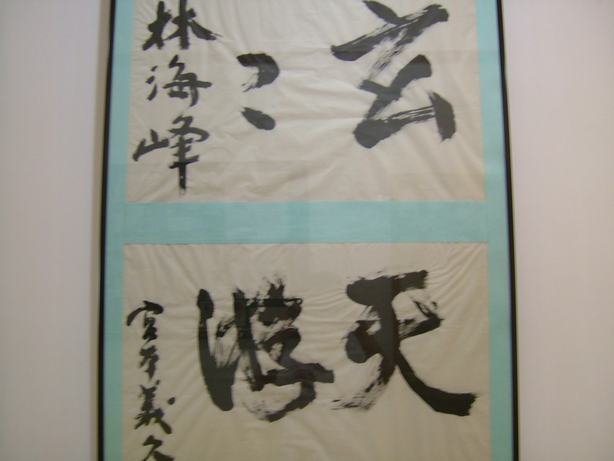 玄〻
林海峰
天游
宮本義久